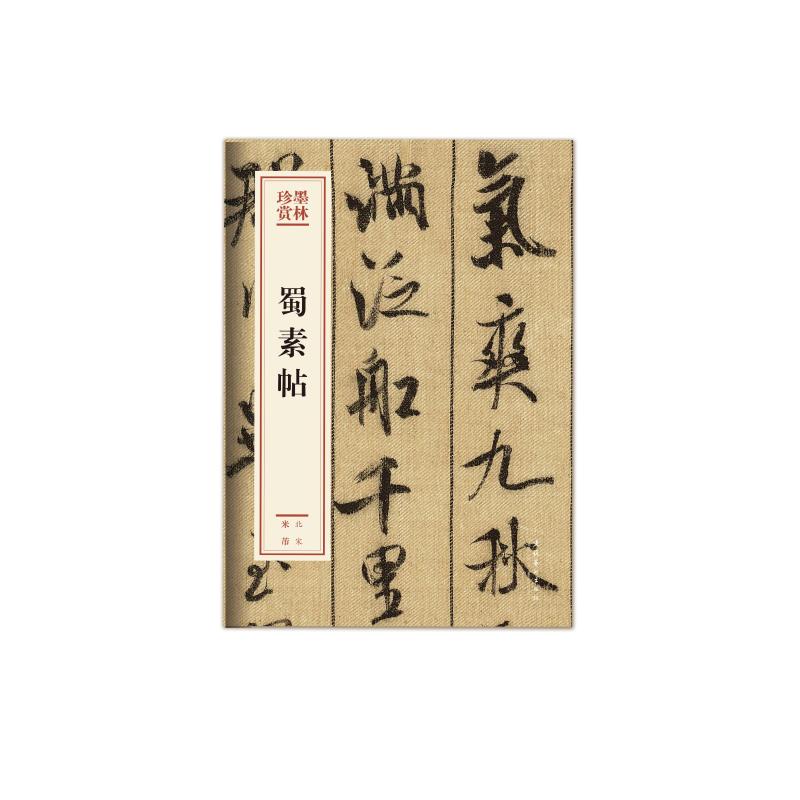 氣爽九秋
滿泛舡千里
墨林珍赏
蜀素帖
北宋
米芾